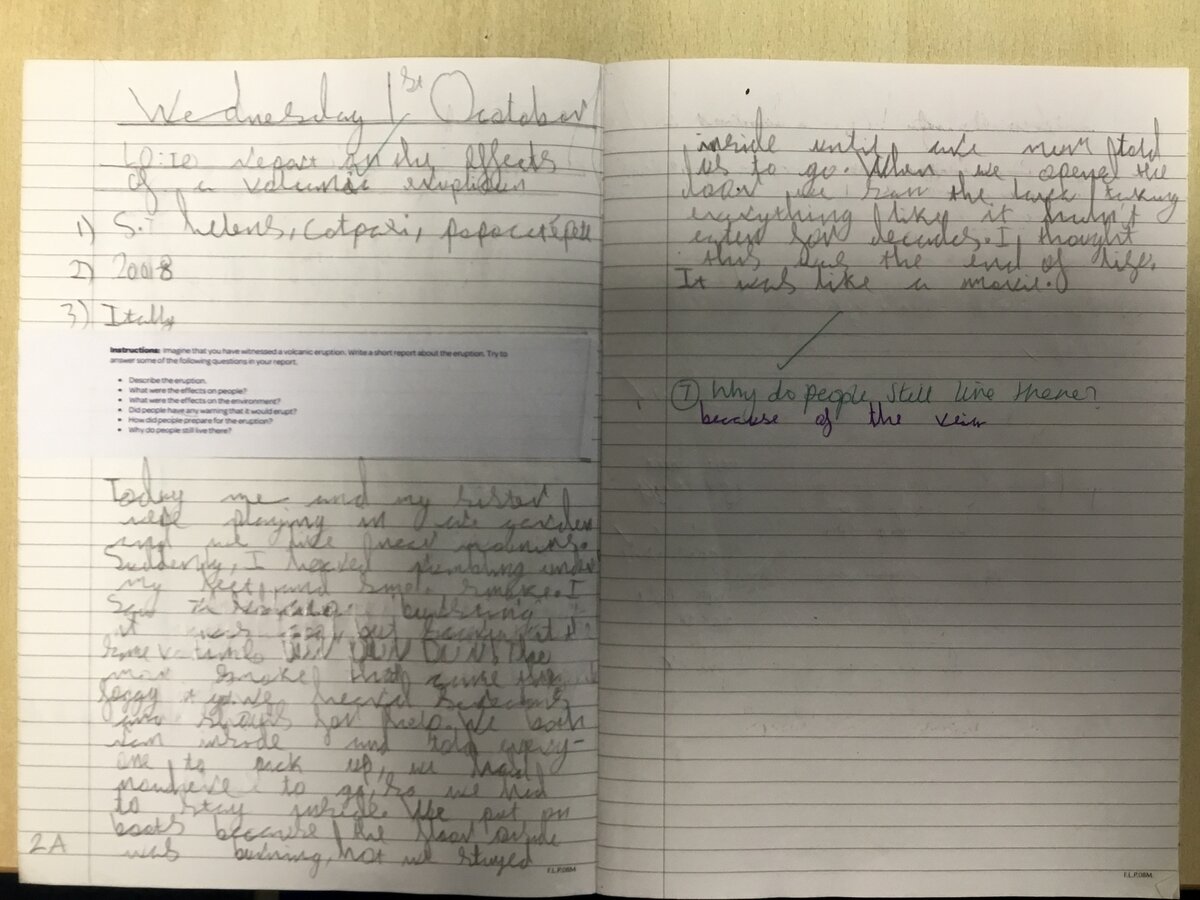 Wednesday 1st Ocotober
LO: to report on the effects
of a volcanic eruption
1) S.t helens, cotpaxi, popocatépetl
2) 20018
3) Itally
Instructions: Imagine that you have witnessed a volcanic eruption. Write a short report about the eruption. Try to
answer some of the following questions in your report.
• Describe the eruption.
• What were the effects on people?
• What were the effects on the environment?
• Did people have any warning that it would erupt?
• How did people prepare for the eruption?
• Why do people still live there?
Today me and my sister
were playing in the garden
and we live near
Suddenly, I heared rumbling under
my feet, and smoke. I
Saw
it was but
Some
smoke that came
foggy heard
shouts for help. We both
ran inside and told every-
one to pack up, we had
nowhere to go, so we had
to stay inside. We put on
boots because the floor outside
was burning, hot we stayed
2A
F.L.P.08M
inside until mum told
us to go. When we opened the
door we saw the lava taking
everything like it hasn't
eaten for decades. I thought
this was the end of life.
It was like a movie.
7 Why do people still live there?
because of the veiw
F.L.P.08M